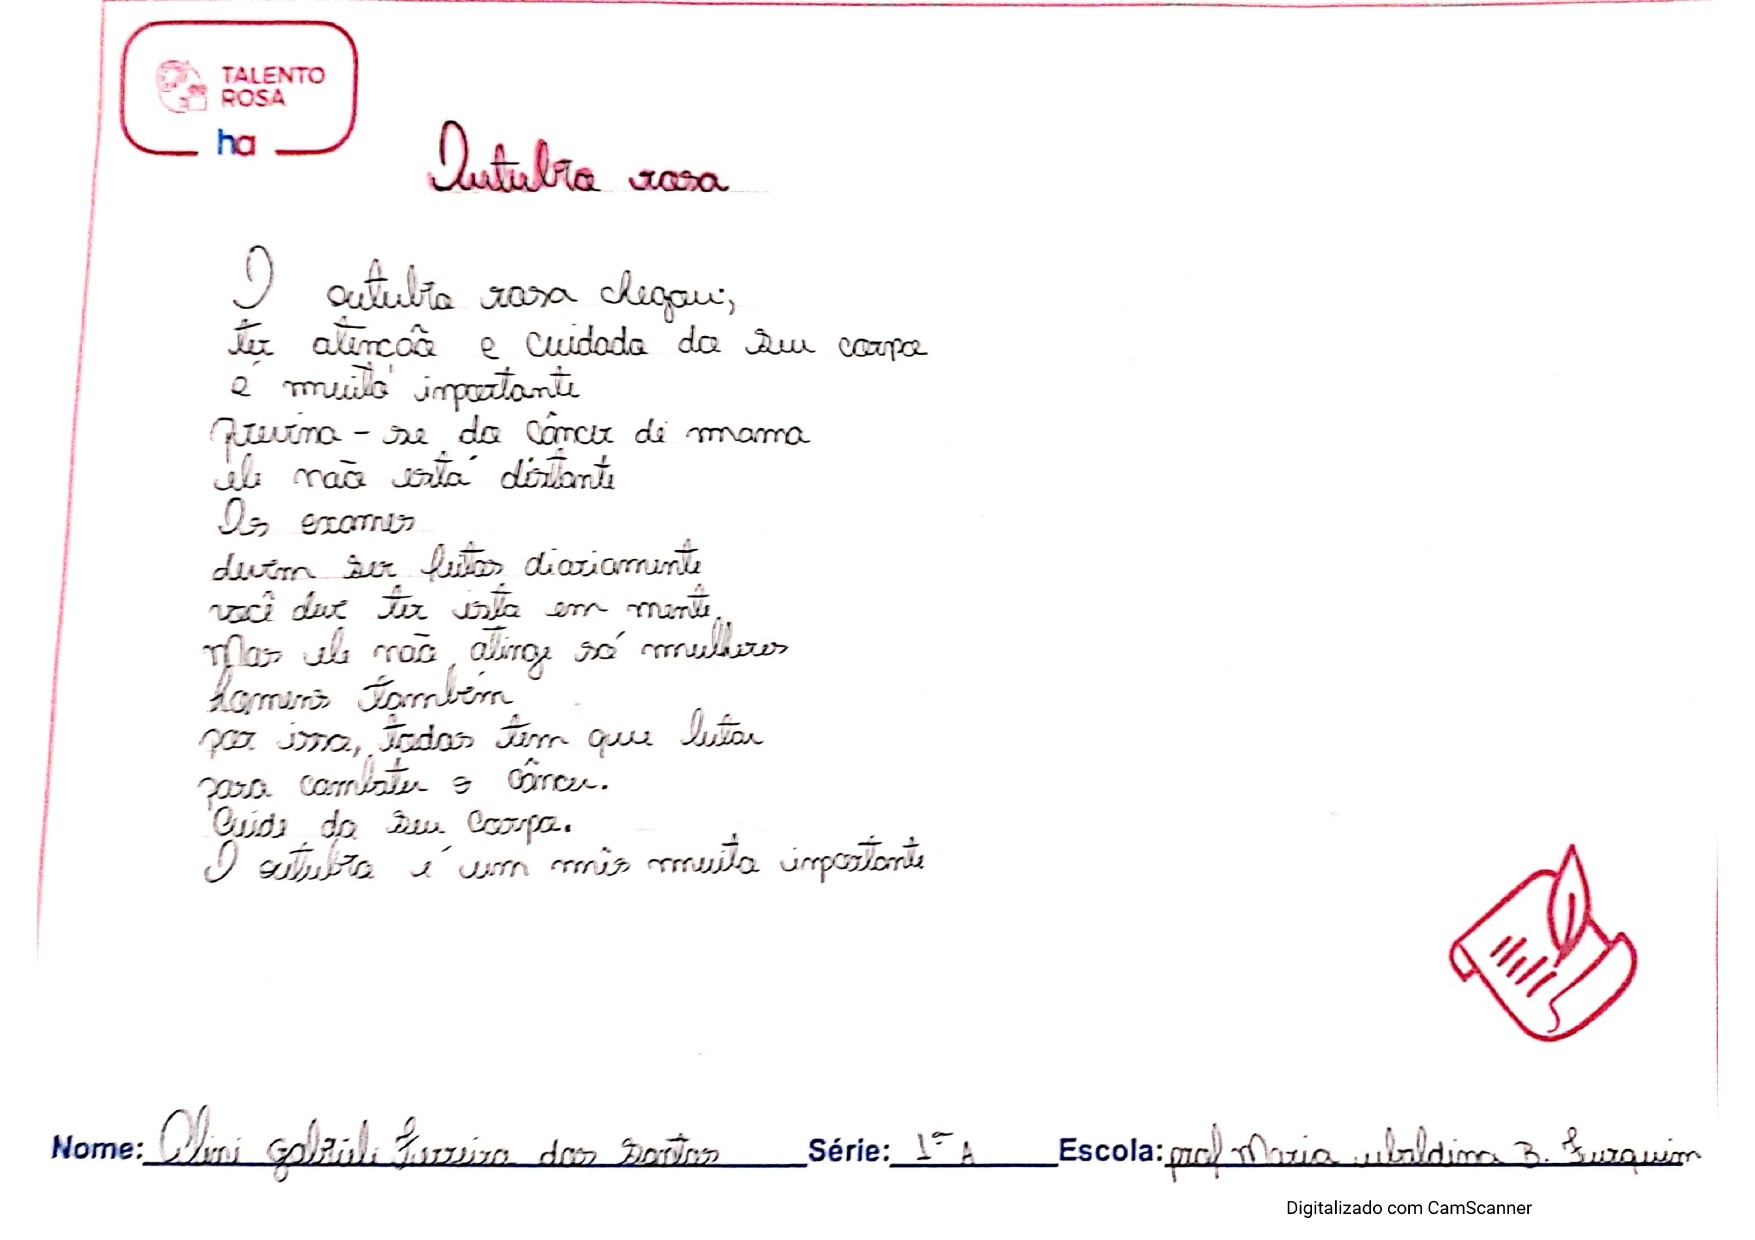 TALENTO
ROSA
ha
Outubro rosa
O outubro rosa chegou;
ter atenção e cuidado do seu corpo
é muito inportante
previna-se do câncer de mama
ele não está distante
Os exames
devem ser feitos diariamente
você deve ter isto em mente
Mas ele não atinge só mulheres
homens também
por isso, todos tem que lutar
para combater o câncer.
Cuide do seu corpo.
O outubro é um mês muito inportante
Nome: Aline Gabrieli Ferreira dos Santos Série: 1ª A Escola: prof Maria ubaldina B. Furquim
Digitalizado com CamScanner